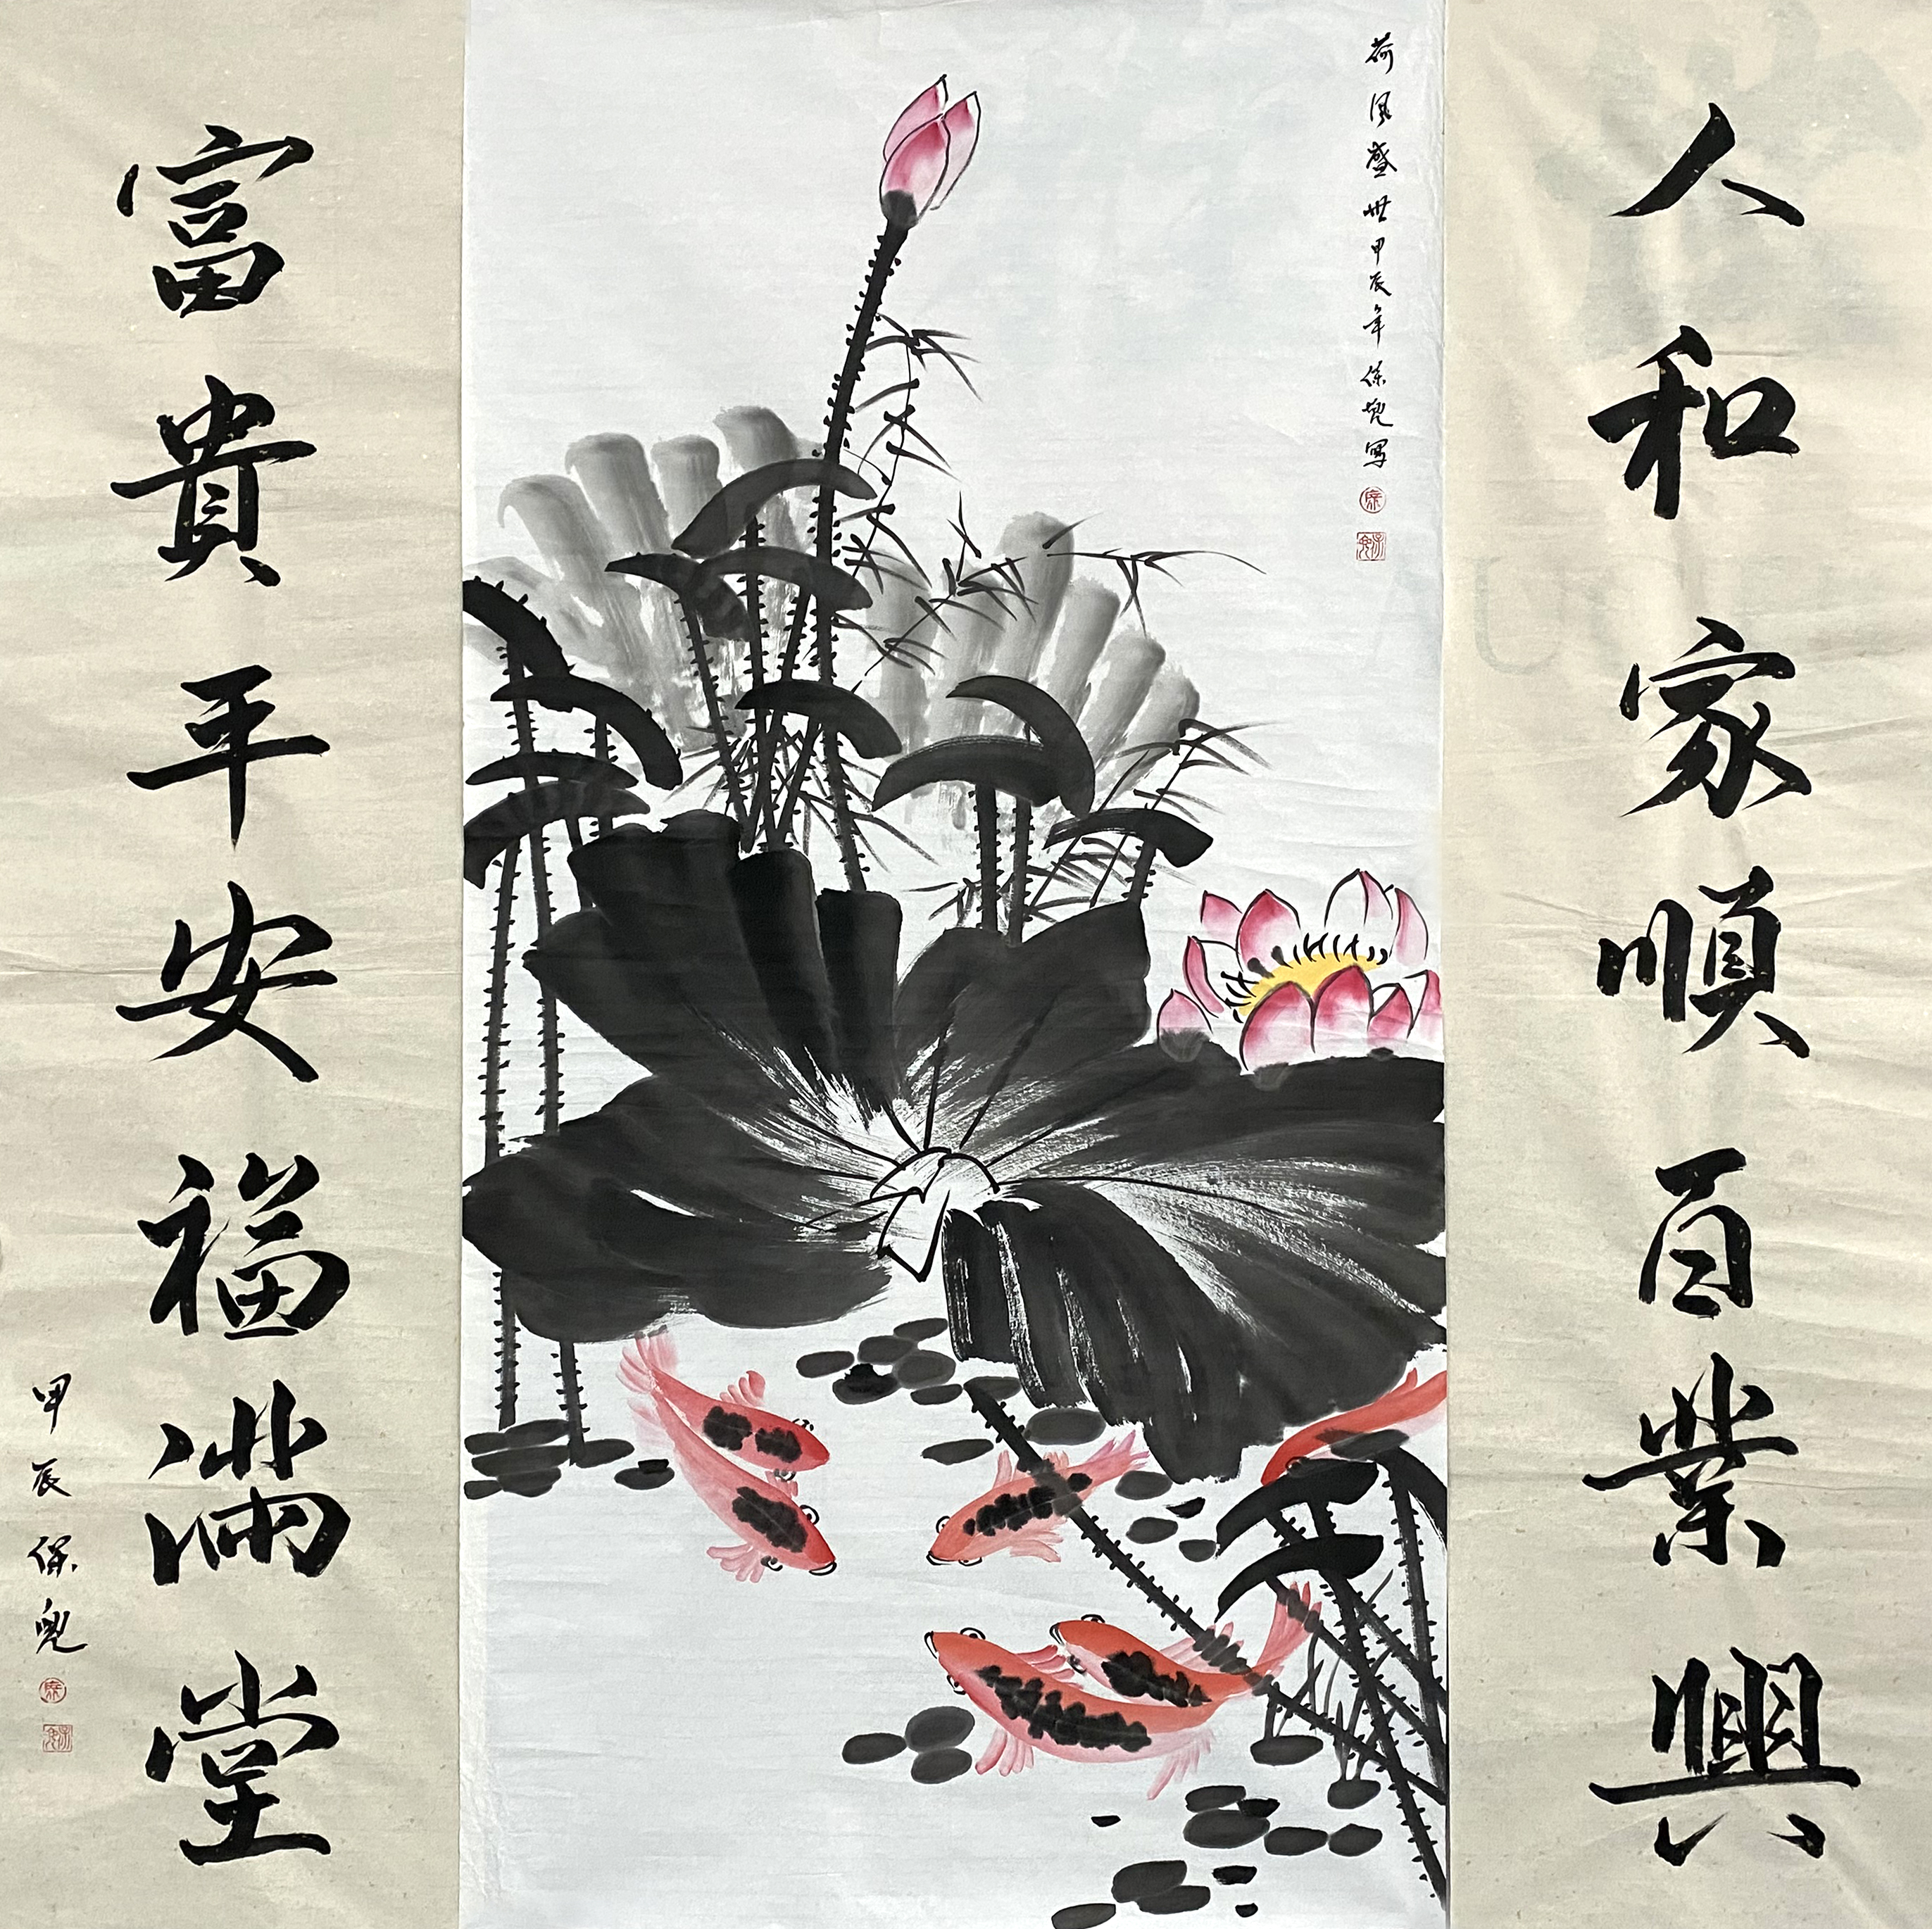 人和家順百業興
荷風盛世甲辰年保兜寫
富貴平安福满堂
甲辰保兜